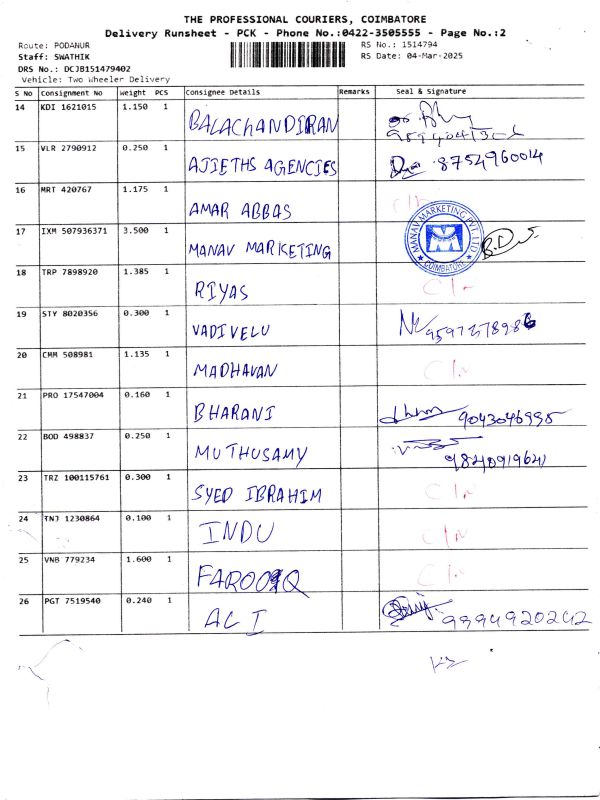 THE PROFESSIONAL COURIERS, COIMBATORE
Delivery Runsheet - PCK - Phone No.:0422-3505555 - Page No.:2
Route: PODANUR RS No.: 1514794
Staff: SWATHIK RS Date: 04-Mar-2025
DRS No.: DCJB151479402
Vehicle: Two Wheeler Delivery
S No Consignment No Weight PCS Consignee Details Remarks Seal & Signature
14 KDI 1621015 1.150 1 BALACHANDIRAN
15 VLR 2790912 0.250 1 AJIETHS AGENCIES 8754960014
16 MRT 420767 1.175 1 AMAR ABBAS
17 IXM 507936371 3.500 1 MANAV MARKETING MANAV MARKETING PVT LTD COIMBATORE
18 TRP 7898920 1.385 1 RIYAS
19 STY 8020356 0.300 1 VADIVELU
20 CMM 508981 1.135 1 MADHAVAN
21 PRO 17547004 0.160 1 BHARANI 9043046995
22 BOD 498837 0.250 1 MUTHUSAMY 9840919641
23 TRZ 100115761 0.300 1 SYED IBRAHIM
24 TNJ 1230864 0.100 1 INDU
25 VNB 779234 1.600 1 FAROOQ
26 PGT 7519540 0.240 1 ALI 9994920242